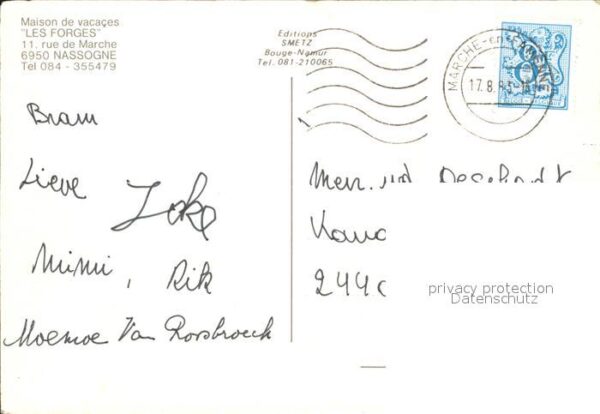 Maison de vacaçes
"LES FORGES"
11, rue de Marche
6950 NASSOGNE
Tel 084 - 355479
Editions
SMETZ
Bouge-Namur
Tel. 081-210065
MARCHE-en-FAMENNE
17.8.
8
Bram
Lieve
Joke
Mimi, Rik
Moemoe Van Rorsbroeck
244
privacy protection
Datenschutz